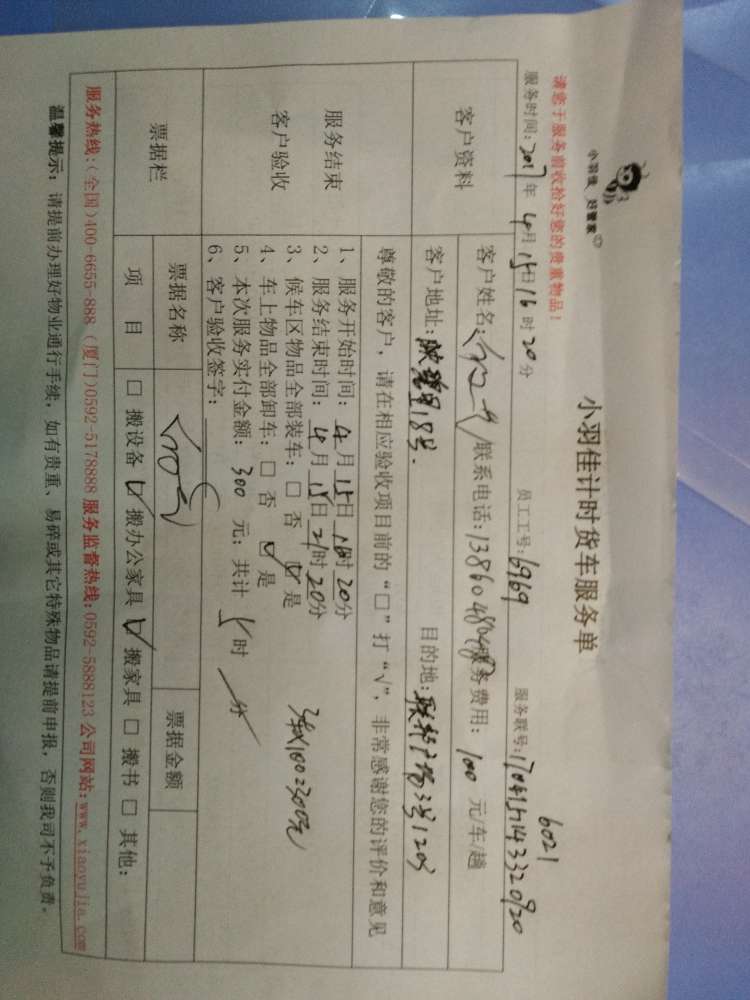 小羽佳 好管家
小羽佳计时货车服务单
6021
请您于服务前收拾好您的贵重物品!
服务时间:2017年4月15日16时20分 员工工号:6969 服务联号:
客户资料
客户姓名: 联系电话: 服务费用:100元/车/趟
客户地址: 里18号. 目的地:
尊敬的客户,请在相应验收项目前的“□”打“√”,非常感谢您的评价和意见
服务结束
客户验收
1、服务开始时间:4月15日 时20分
2、服务结束时间:4月15日21时20分
3、候车区物品全部装车:□ 否 ☑ 是
4、车上物品全部卸车:□ 否 ☑ 是
5、本次服务实付金额:300元;共计5时/分
6、客户验收签字:
票据栏
票据名称 票据金额
项目 □ 搬设备 ☑ 搬办公家具 ☑ 搬家具 □ 搬书 □ 其他:
服务热线:(全国)400-6655-888 (厦门)0592-5178888 服务监督热线:0592-5888123 公司网站:www.xiaoyujia.com
温馨提示:请提前办理好物业通行手续,如有贵重、易碎或其它特殊物品请提前申报,否则我司不予负责。